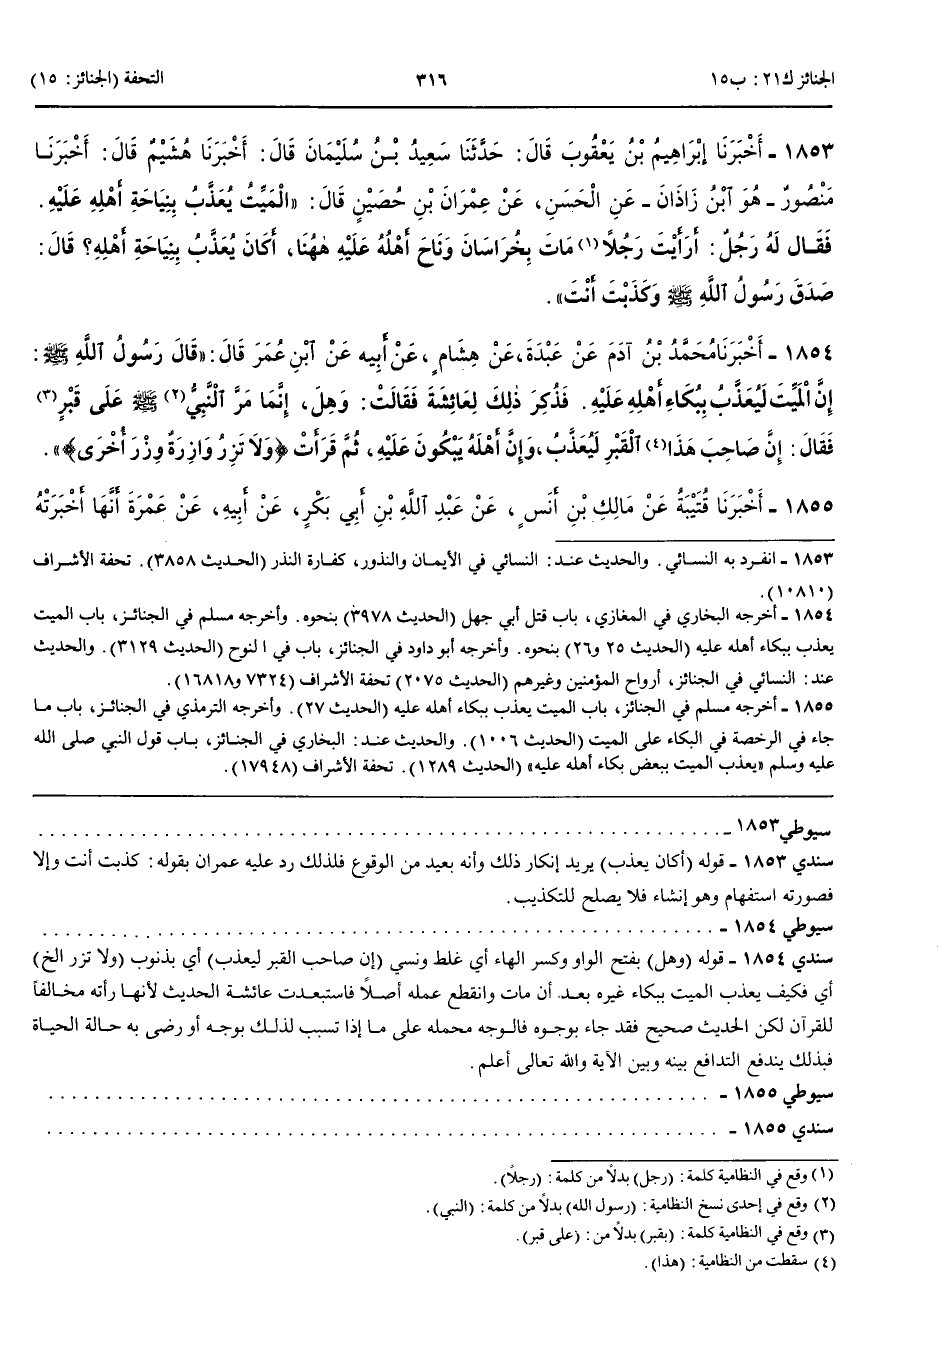 الجنائز ك٢١: ب١٥ ٣١٦ التحفة (الجنائز: ١٥)
١٨٥٣ ـ أَخْبَرَنَا إِبْرَاهِيمُ بْنُ يَعْقُوبَ قَالَ: حَدَّثَنَا سَعِيدُ بْنُ سُلَيْمَانَ قَالَ: أَخْبَرَنَا هُشَيْمٌ قَالَ: أَخْبَرَنَا
مَنْصُورٌ ـ هُوَ ٱبْنُ زَاذَانَ ـ عَنِ الْحَسَنِ، عَنْ عِمْرَانَ بْنِ حُصَيْنٍ قَالَ: «الْمَيِّتُ يُعَذَّبُ بِنِيَاحَةِ أَهْلِهِ عَلَيْهِ.
فَقَالَ لَهُ رَجُلٌ: أَرَأَيْتَ رَجُلًا(١) مَاتَ بِخُرَاسَانَ وَنَاحَ أَهْلُهُ عَلَيْهِ هٰهُنَا، أَكَانَ يُعَذَّبُ بِنِيَاحَةِ أَهْلِهِ؟ قَالَ:
صَدَقَ رَسُولُ اللَّهِ ﷺ وَكَذَبْتَ أَنْتَ».
١٨٥٤ ـ أَخْبَرَنَا مُحَمَّدُ بْنُ آدَمَ عَنْ عَبْدَةَ، عَنْ هِشَامٍ، عَنْ أَبِيهِ عَنْ ٱبْنِ عُمَرَ قَالَ: «قَالَ رَسُولُ ٱللَّهِ ﷺ:
إِنَّ الْمَيِّتَ لَيُعَذَّبُ بِبُكَاءِ أَهْلِهِ عَلَيْهِ. فَذُكِرَ ذٰلِكَ لِعَائِشَةَ فَقَالَتْ: وَهِلَ، إِنَّمَا مَرَّ النَّبِيُّ(٢) ﷺ عَلَى قَبْرٍ(٣)
فَقَالَ: إِنَّ صَاحِبَ هَذَا(٤) الْقَبْرِ لَيُعَذَّبُ، وَإِنَّ أَهْلَهُ يَبْكُونَ عَلَيْهِ، ثُمَّ قَرَأَتْ ﴿وَلَا تَزِرُ وَازِرَةٌ وِزْرَ أُخْرَى﴾».
١٨٥٥ ـ أَخْبَرَنَا قُتَيْبَةُ عَنْ مَالِكِ بْنِ أَنَسٍ، عَنْ عَبْدِ ٱللَّهِ بْنِ أَبِي بَكْرٍ، عَنْ أَبِيهِ، عَنْ عَمْرَةَ أَنَّهَا أَخْبَرَتْهُ
١٨٥٣ ـ انفرد به النسائي. والحديث عند: النسائي في الأيمان والنذور، كفارة النذر (الحديث ٣٨٥٨). تحفة الأشراف
(١٠٨١٠).
١٨٥٤ ـ أخرجه البخاري في المغازي، باب قتل أبي جهل (الحديث ٣٩٧٨) بنحوه. وأخرجه مسلم في الجنائز، باب الميت
يعذب ببكاء أهله عليه (الحديث ٢٥ و٢٦) بنحوه. وأخرجه أبو داود في الجنائز، باب في ا لنوح (الحديث ٣١٢٩). والحديث
عند: النسائي في الجنائز، أرواح المؤمنين وغيرهم (الحديث ٢٠٧٥) تحفة الأشراف (٧٣٢٤ و١٦٨١٨).
١٨٥٥ ـ أخرجه مسلم في الجنائز، باب الميت يعذب ببكاء أهله عليه (الحديث ٢٧). وأخرجه الترمذي في الجنائز، باب ما
جاء في الرخصة في البكاء على الميت (الحديث ١٠٠٦). والحديث عند: البخاري في الجنائز، باب قول النبي صلى الله
عليه وسلم «يعذب الميت ببعض بكاء أهله عليه» (الحديث ١٢٨٩). تحفة الأشراف (١٧٩٤٨).
سيوطي ١٨٥٣ ـ . . . . . . . . . . . . . . . . . . . .
سندي ١٨٥٣ ـ قوله (أكان يعذب) يريد إنكار ذلك وأنه بعيد من الوقوع فلذلك رد عليه عمران بقوله: كذبت أنت وإلا
فصورته استفهام وهو إنشاء فلا يصلح للتكذيب.
سيوطي ١٨٥٤ ـ . . . . . . . . . . . . . . . . . . . .
سندي ١٨٥٤ ـ قوله (وهل) بفتح الواو وكسر الهاء أي غلط ونسي (إن صاحب القبر ليعذب) أي بذنوب (ولا تزر الخ)
أي فكيف يعذب الميت ببكاء غيره بعد. أن مات وانقطع عمله أصلاً فاستبعدت عائشة الحديث لأنها رأته مخالفاً
للقرآن لكن الحديث صحيح فقد جاء بوجوه فالوجه محمله على ما إذا تسبب لذلك بوجه أو رضى به حالة الحياة
فبذلك يندفع التدافع بينه وبين الآية والله تعالى أعلم.
سيوطي ١٨٥٥ ـ . . . . . . . . . . . . . . . . . . . .
سندي ١٨٥٥ ـ . . . . . . . . . . . . . . . . . . . .
(١) وقع في النظامية كلمة: (رجل) بدلاً من كلمة: (رجلاً).
(٢) وقع في إحدى نسخ النظامية: (رسول الله) بدلاً من كلمة: (النبي).
(٣) وقع في النظامية كلمة: (بقبر) بدلاً من: (على قبر).
(٤) سقطت من النظامية: (هذا).